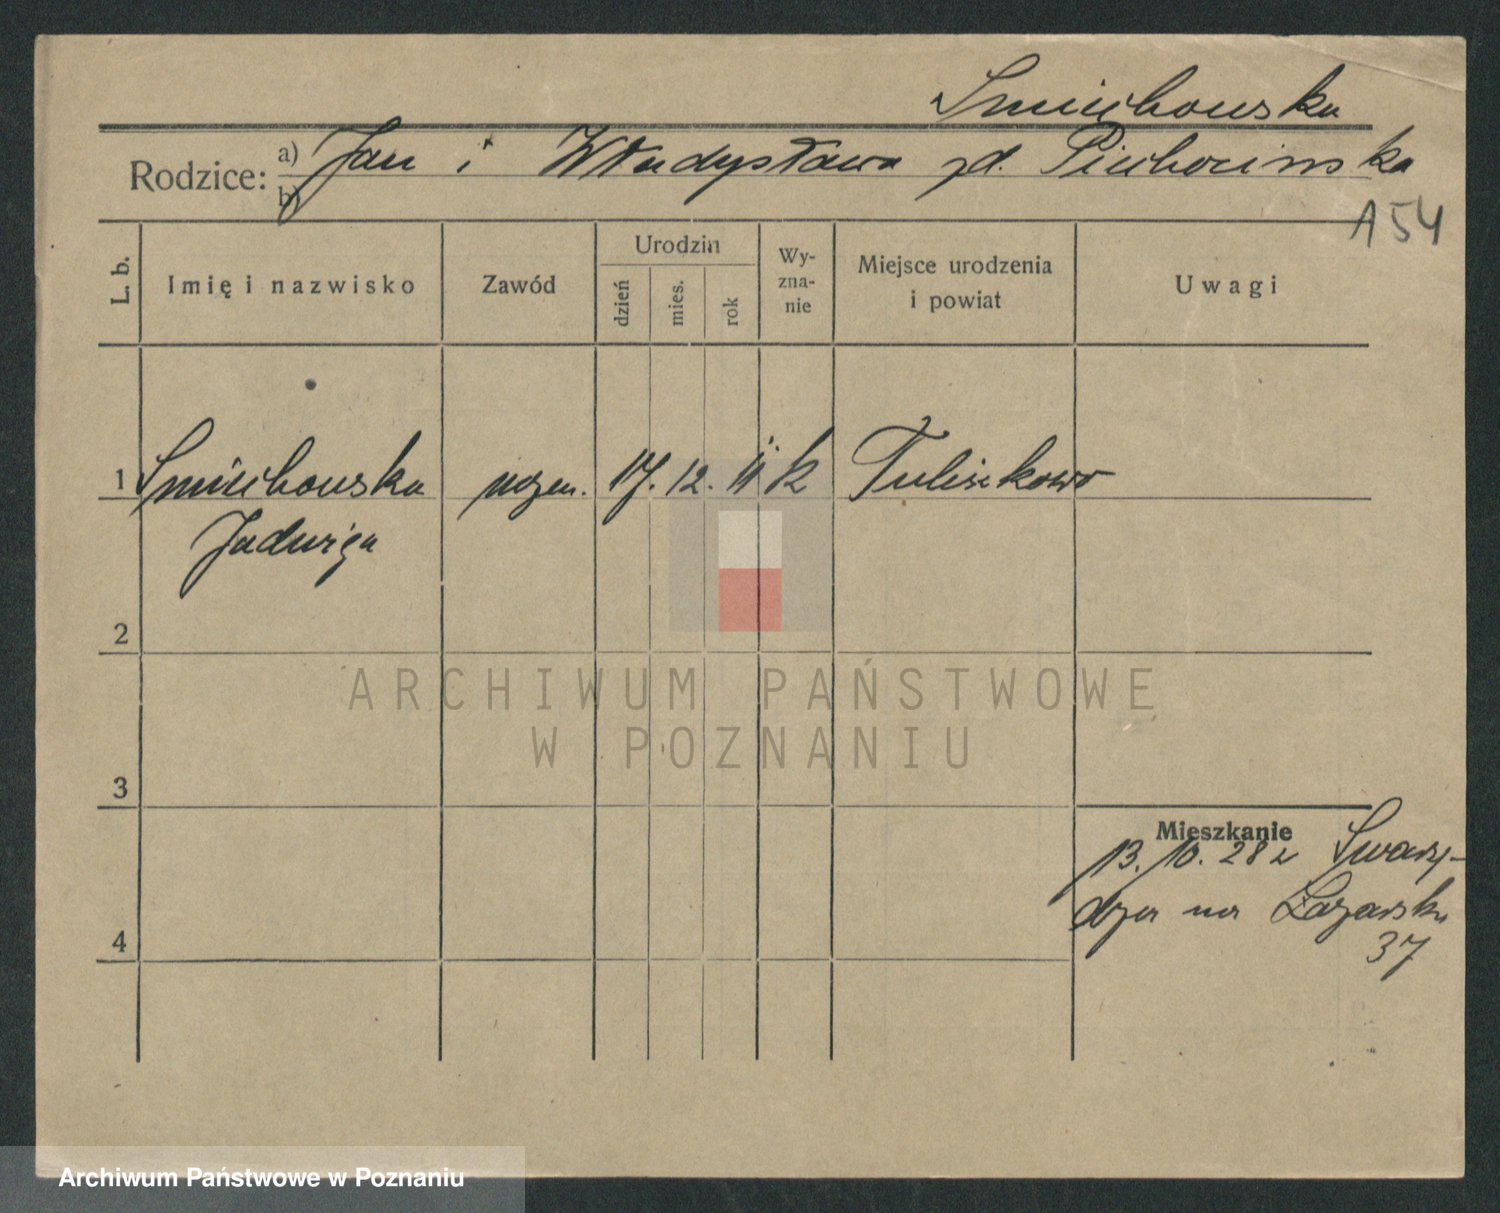 Śmiechowska
Rodzice: a) Jan i Władysława zd. Piechocińska
b)
A54
L. b.
Imię i nazwisko
Zawód
Urodzin
dzień
mies.
rok
Wy-
zna-
nie
Miejsce urodzenia
i powiat
Uwagi
1 Śmiechowska uczen. 17. 12. 11 k Tuliszkowo
Jadwiga
2
ARCHIWUM PAŃSTWOWE
W POZNANIU
3
Mieszkanie
13. 10. 28 z Swarzę-
dza na Łazarska
4
37
Archiwum Państwowe w Poznaniu